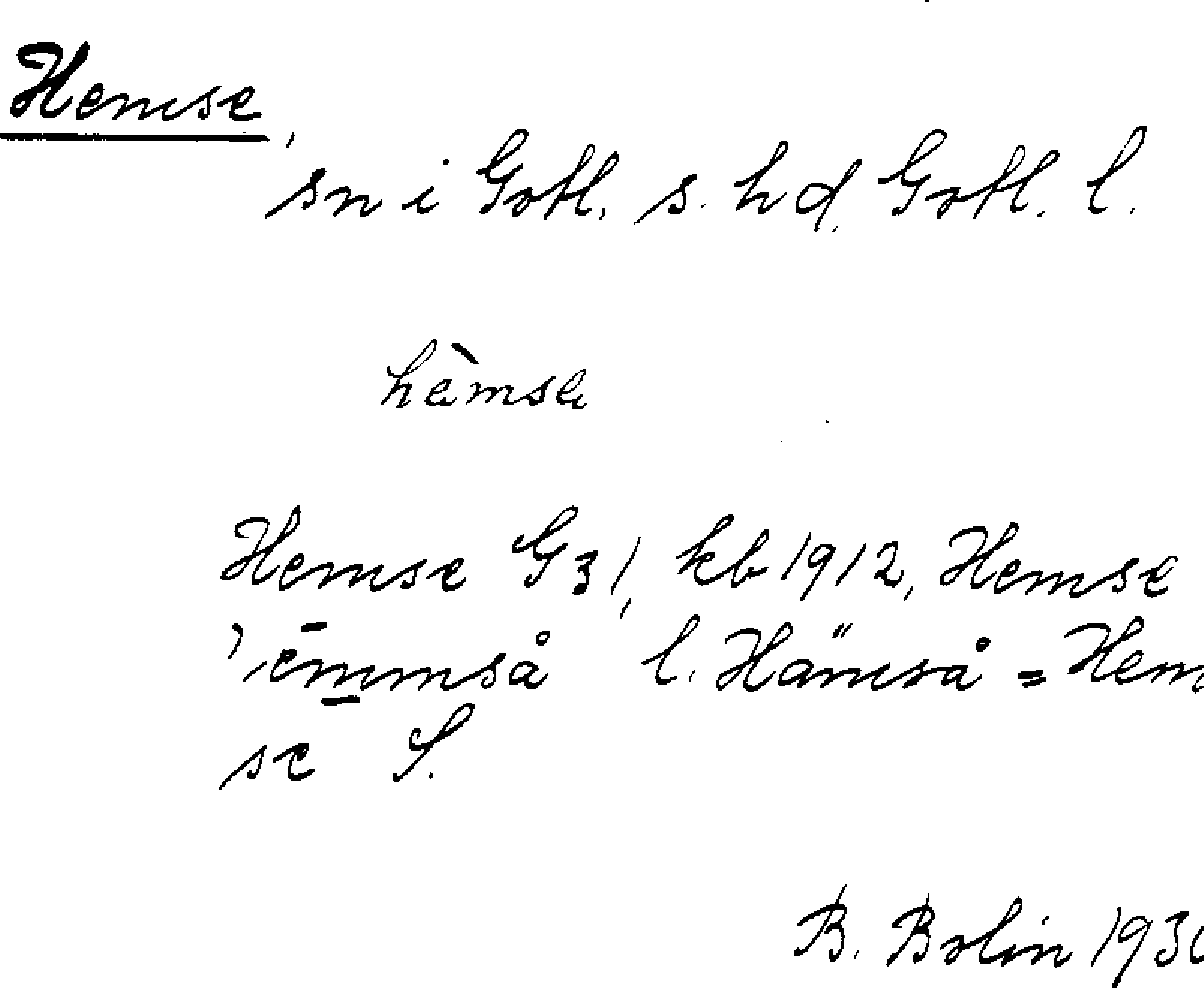 Hemse,
sn i Gotl. s. hd. Gotl. l.
hèmse
Hemse G31, kb 1912, Hemse
l. Hämså = Hem
se S.
B. Bolin